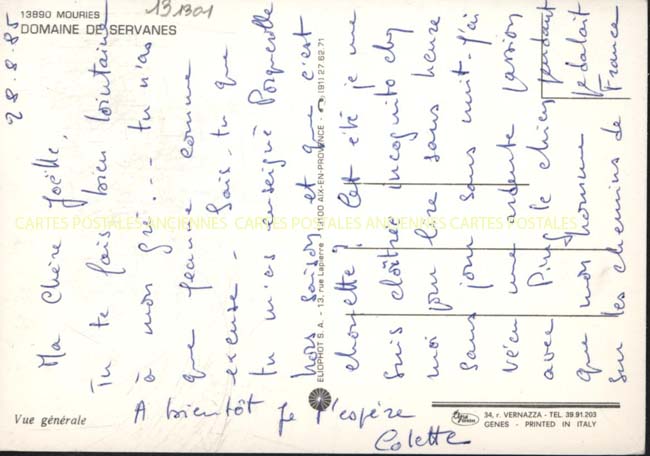 13890 MOURIES
DOMAINE DE SERVANES
131301
28-8-85
Ma Chère Joëlle,
Tu te fais bien lointaine
à mon gré... tu n'as
que Jeanne comme
excuse - Sais-tu que
tu m'as enseigné Porquerolle
hors saison et que c'est
chouette? Cet été je me
suis cloîtrée incognito chez
moi pour lire sans heure
sans jour sans nuit - J'ai
vécu une ardente passion
avec Ping le chien pendant
que mon homme pédalait
sur les chemins de France
A bientôt je l'espère
Colette
CARTES POSTALES ANCIENNES CARTES POSTALES ANCIENNES CARTES POSTALES ANCIENNES
ELIOPHOT S.A. - 13, rue Lapierre - 13100 AIX-EN-PROVENCE - (91) 27.62.71
Vue générale
34, r. VERNAZZA - TEL. 39.91.203
GENES - PRINTED IN ITALY